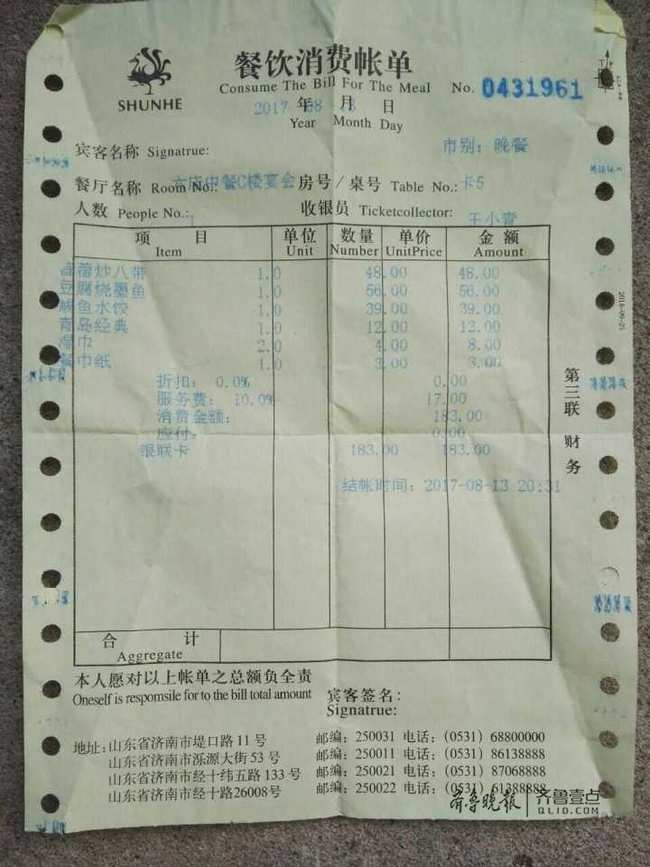 SHUNHE
餐饮消费帐单
Consume The Bill For The Meal No. 0431961
2017 年 08 月 日
Year Month Day
宾客名称 Signatrue: 市别：晚餐
餐厅名称 Room No.: 中餐C楼宴会 房号/桌号 Table No.: 卡5
人数 People No.: 1 收银员 Ticketcollector: 王小青
项目 单位 数量 单价 金额
Item Unit Number UnitPrice Amount
炒八带 1.0 48.00 48.00
豆腐烧墨鱼 1.0 56.00 56.00
鲅鱼水饺 1.0 39.00 39.00
青岛经典 1.0 12.00 12.00
湿巾 2.0 4.00 8.00
餐巾纸 1.0 3.00 3.00
折扣：0.0% 0.00
服务费：10.0% 17.00
消费金额： 183.00
应付： 0.00
银联卡 183.00 183.00
结帐时间：2017-08-13 20:31
第三联 财务
合计
Aggregate
本人愿对以上帐单之总额负全责
Oneself is respomsile for to the bill total amount
宾客签名:
Signatrue:
地址:山东省济南市堤口路11号 邮编: 250031 电话: (0531) 68800000
山东省济南市泺源大街53号 邮编: 250011 电话: (0531) 86138888
山东省济南市经十纬五路133号 邮编: 250021 电话: (0531) 87068888
山东省济南市经十路26008号 邮编: 250022 电话: (0531) 61388888
齐鲁晚报 齐鲁壹点
QLID.COM